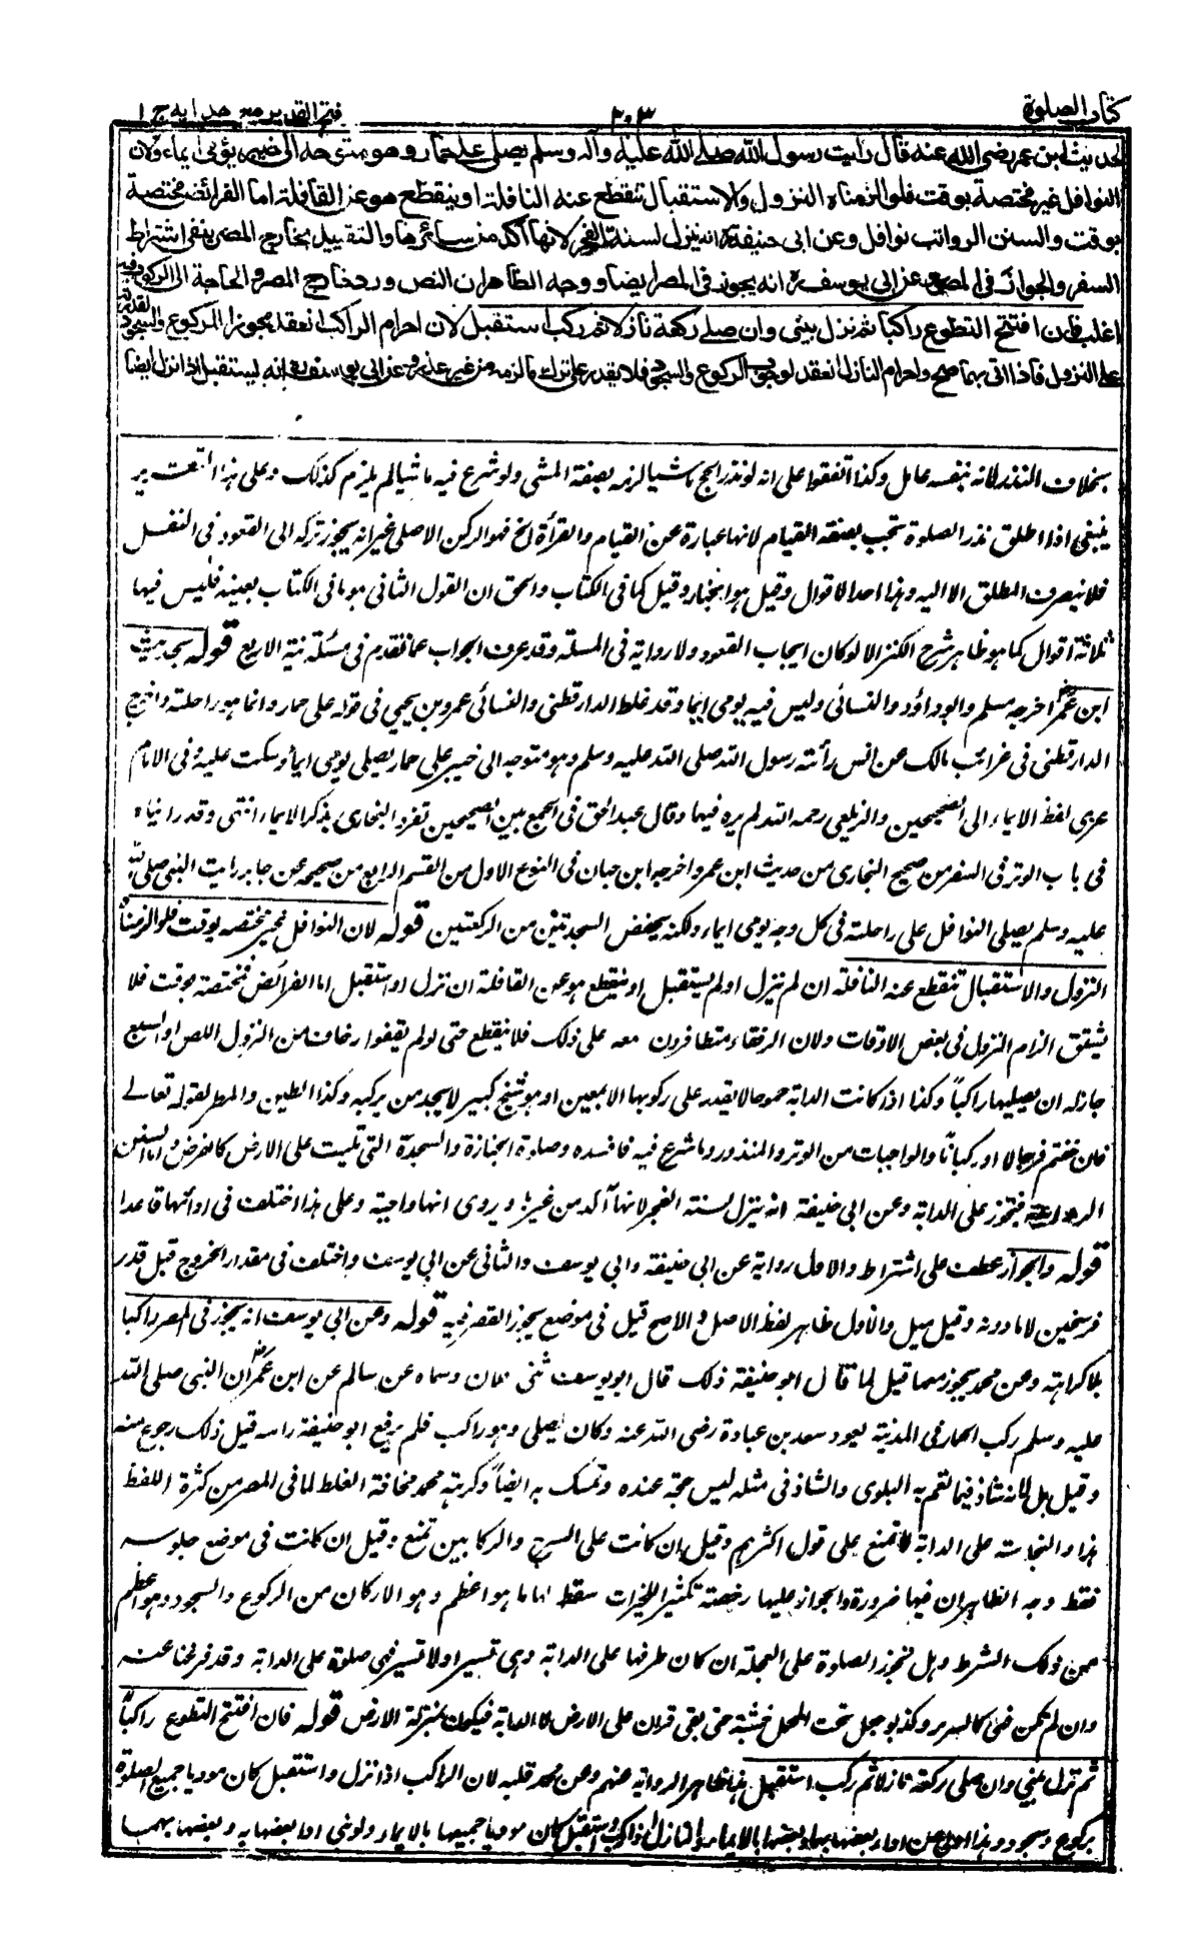 كتاب الصلوة
٢٠٣
فتح القدير مع هدايه ج ١
لحديث ابن عمر رضي الله عنه قال رايت رسول الله صلى الله عليه وآله وسلم يصلى على حمار وهو متوجه الى خيبر يؤمى ايماء ولان
النوافل غير مختصة بوقت فلو الزمناه النزول والاستقبال تنقطع عنه النافلة او ينقطع هو عن القافلة اما الفرائض مختصة
بوقت والسنن الرواتب نوافل وعن ابى حنيفة انه ينزل لسنة الفجر لانها آكد من سائرها والتقييد بخارج المصر ينفى اشتراط
السفر والجواز فى المصر وعن ابى يوسف انه يجوز فى المصر ايضا ووجه الظاهر ان النص ورد خارج المصر والحاجة الى الركوب فيه
اغلب فان افتتح التطوع راكبا ثم نزل يبنى وان صلى ركعة نازلا ثم ركب استقبل لان احرام الراكب انعقد مجوزا للركوع والسجود لقدرته
على النزول فاذا اتى بهما صح واحرام النازل انعقد لوجوب الركوع والسجود فلا يقدر على ترك ما لزمه من غير عذر وعن ابى يوسف انه يستقبل اذا نزل ايضا
بخلاف النذر لانه بنفسه عامل وكذا اتفقوا على انه لو نذر الحج ماشيا لزمه بصفة المشى ولو شرع فيه ماشيا لم يلزم كذلك وعلى هذا
ينبغى اذا اطلق نذر الصلوة تجب بصفة القيام لانها عبارة عن القيام والقرأة الخ فهو الركن الاصلى غير انه يجوز تركه الى القعود فى النفل
فلا ينصرف المطلق الا اليه وهذا احد الاقوال وقيل هو بالخيار وقيل كما فى الكتاب والحق ان القول الثانى هو ما فى الكتاب بعينه فليس فيها
ثلاثة اقوال كما هو ظاهر شرح الكنز الا لو كان ايجاب القعود ولا رواية فى المسئلة وقد عرف الجواب عما تقدم فى مسئلة نية الاربع قوله لحديث
ابن عمر اخرجه مسلم وابو داؤد والنسائى وليس فيه يومى ايماء وقد غلط الدارقطنى والنسائى عمرو بن يحيى فى قوله على حمار وانما هو راحلته واخرج
الدارقطنى فى غرائب مالك عن انس رأيت رسول الله صلى الله عليه وسلم وهو متوجه الى خيبر على حمار يصلى يومى ايماء وسكت عليه وفى الامام
عزى لفظ الايماء الى الصحيحين والزيلعى رحمه الله لم يره فيهما وقال عبد الحق فى الجمع بين الصحيحين تفرد البخارى بذكر الايماء انتهى وقد رايناه
فى باب الوتر فى السفر من صحيح البخارى من حديث ابن عمر واخرجه ابن حبان فى النوع الاول من القسم الرابع من صحيحه عن جابر رايت النبى صلى الله
عليه وسلم يصلى النوافل على راحلته فى كل وجه يومى ايماء ولكنه يخفض السجدتين من الركعتين قوله لان النوافل غير مختصه بوقت فلو الزمناه
النزول والاستقبال تنقطع عنه النافلة ان لم ينزل او لم يستقبل او ينقطع هو عن القافلة ان نزل او استقبل اما الفرائض فمختصة بوقت فلا
يشق الزام النزول فى بعض الاوقات ولان الرفقاء متظافرون معه على ذلك فلا ينقطع حتى لو لم يقفوا وخاف من النزول اللص او السبع
جاز له ان يصليها راكباً وكذا اذا كانت الدابة جموحا لا يقدر على ركوبها الا بمعين او هو شيخ كبير لا يجد من يركبه وكذا الطين والمطر لقوله تعالى
فان خفتم فرجالا او ركبانا والواجبات من الوتر والمنذور وما شرع فيه فافسده وصلوة الجنازة والسجدة التى تليت على الارض كالفرض واما السنن
الرواتب فتجوز على الدابة وعن ابى حنيفة انه ينزل لسنة الفجر لانها آكد من غيرها ويروى انها واجبة وعلى هذا اختلف فى ادائها قاعدا
قوله والجواز عطف على اشتراط والاول رواية عن ابى حنيفة وابى يوسف والثانى عن ابى يوسف واختلف فى مقدار الخروج قيل قدر
فرسخين لا ما دونه وقيل ميل والاول ظاهر لفظ الاصل والاصح قيل فى موضع يجوز القصر فيه قوله وعن ابى يوسف انه يجوز فى المصر راكبا
بلا كراهة وعن محمد يجوز معها قيل لما قال ابو حنيفة ذلك قال ابو يوسف ثنى فلان وسماه عن سالم عن ابن عمر ان النبى صلى الله
عليه وسلم ركب الحمار فى المدينة يعود سعد بن عبادة رضى الله عنه وكان يصلى وهو راكب فلم يرفع ابو حنيفة راسه قيل ذلك رجوع منه
وقيل بل لانه شاذ فيما تعم به البلوى والشاذ فى مثله ليس حجة عنده وتمسك به ايضاً وكرهه محمد مخافة الغلط لما فى المصر من كثرة اللغط
هذا والنجاسة على الدابة لا تمنع على قول اكثرهم وقيل ان كانت على السرج والركابين تمنع وقيل ان كانت فى موضع جلوسه
فقط وجه الظاهر ان فيها ضرورة والجواز عليها رخصة تكثيرا للخيرات سقط لها ما هو اعظم وهو الاركان من الركوع والسجود وهو اعظم
من ذلك الشرط وهل تجوز الصلوة على العجلة ان كان طرفها على الدابة وهى تسير اولا تسير فهى صلوة على الدابة وقد فرغنا عنه
وان لم تكن فهى كالسرير وكذا لو جعل تحت المحمل خشبة حتى بقى قراره على الارض لا الدابة فيكون بمنزلة الارض قوله فان افتتح التطوع راكباً
ثم نزل يبنى وان صلى ركعة نازلا ثم ركب استقبل هذا ظاهر الرواية عنهم وعن محمد قلبه لان الراكب اذا نزل واستقبل كان موديا جميع الصلوة
بركوع وسجود وهذا اولى من اداء بعضها بهما وبعضها بالايماء والنازل اذا ركب واستقبل كان موديا جميعها بالايماء ولو بنى ادا بعضها به وبعضها بهما